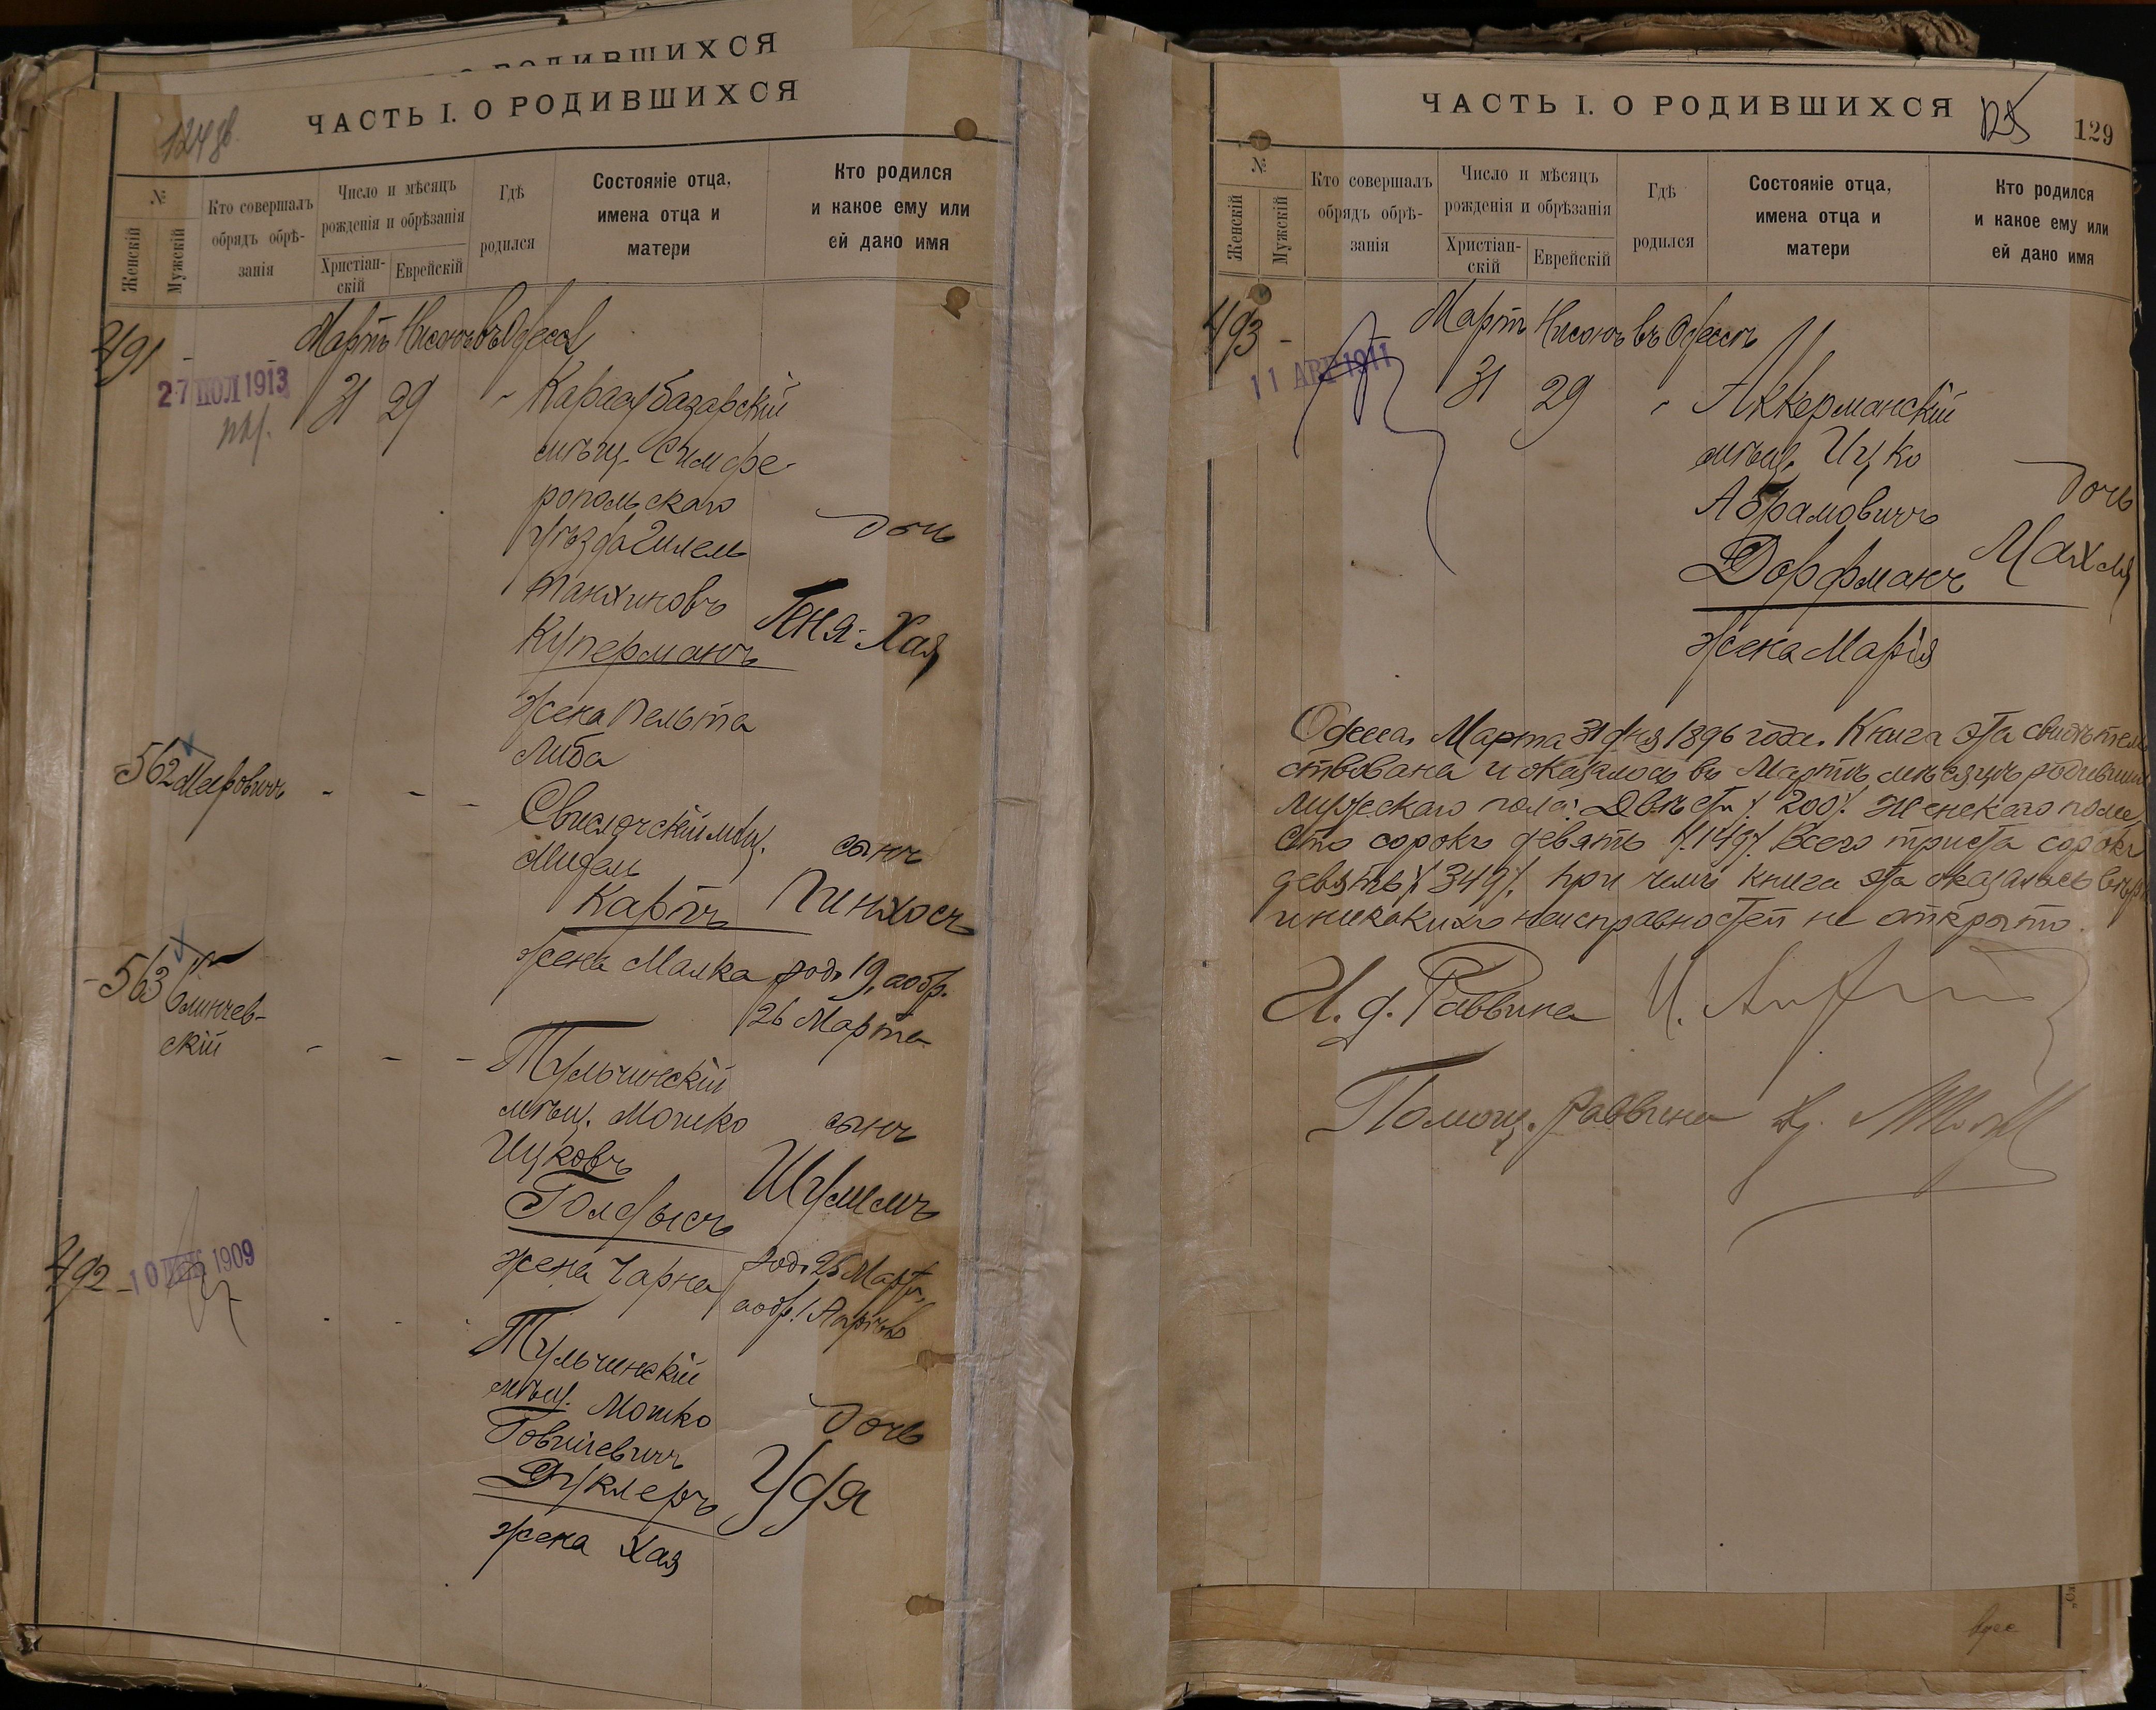 О РОДИВШИХСЯ
ЧАСТЬ I. О РОДИВШИХСЯ
№
Женскій
Мужскій
Кто совершалъ
обрядъ обрѣ-
занія
Число и мѣсяцъ
рожденія и обрѣзанія
Христіан-
скій
Еврейскій
Гдѣ
родился
Состояніе отца,
имена отца и
матери
Кто родился
и какое ему или
ей дано имя
491 -
Мартъ Нисонъ въ Одессѣ
27 ІЮЛ 1913
31 29 "
Карасубазарскій
мѣщ. Симфе-
ропольскаго
уѣзда Хилель
Танхиновъ
Куперманъ
жена Пельта
Либа
дочь
Геня-Хая
562 Меировичъ - - -
Свислочскій мѣщ.
Мидель
Карпъ
жена Малка
сынъ
Пинхосъ
род. 19, а обр.
26 Марта
- 563
Блинчев-
скій - - -
Тульчинскій
мѣщ. Мошко
Ицковъ
жена Чарна
сынъ
Шулимъ
род. 25 Март.,
а обр. 1 Апрѣль
492 -
10 1909
Тульчинскій
мѣщ. Мошко
Дуклеръ
жена Хая
дочь
Удя
ЧАСТЬ I. О РОДИВШИХСЯ
129
№
Женскій
Мужскій
Кто совершалъ
обрядъ обрѣ-
занія
Число и мѣсяцъ
рожденія и обрѣзанія
Христіан-
скій
Еврейскій
Гдѣ
родился
Состояніе отца,
имена отца и
матери
Кто родился
и какое ему или
ей дано имя
493 -
Мартъ Нисонъ въ Одессѣ
11 АПР 1911
31 29 "
Аккерманскій
мѣщ. Ицко
Абрамовичъ
Дорфманъ
жена Марія
дочь
Махля
Одесса, Марта 31 дня 1896 года. Книга эта свидѣтель
ствована и оказалось въ Мартѣ мѣсяцѣ родивших
Мужескаго пола: Двѣсти % 200% Женскаго пола,
сто сорокъ девять % 149% Всего триста сорокъ
девять % 349%, при чемъ книга эта оказалась
и никакихъ неисправностей не открыто.
И. д. Раввина
Помощ. Раввина